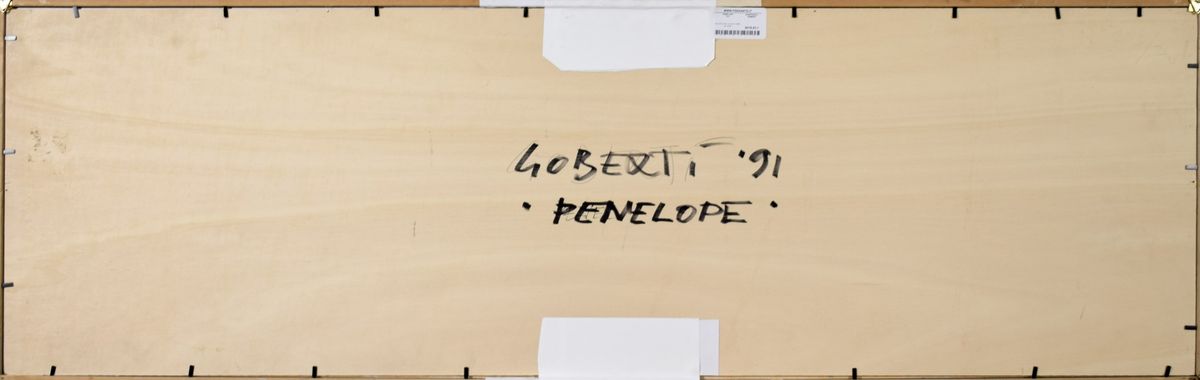 GOBERTI '91
· PENELOPE ·